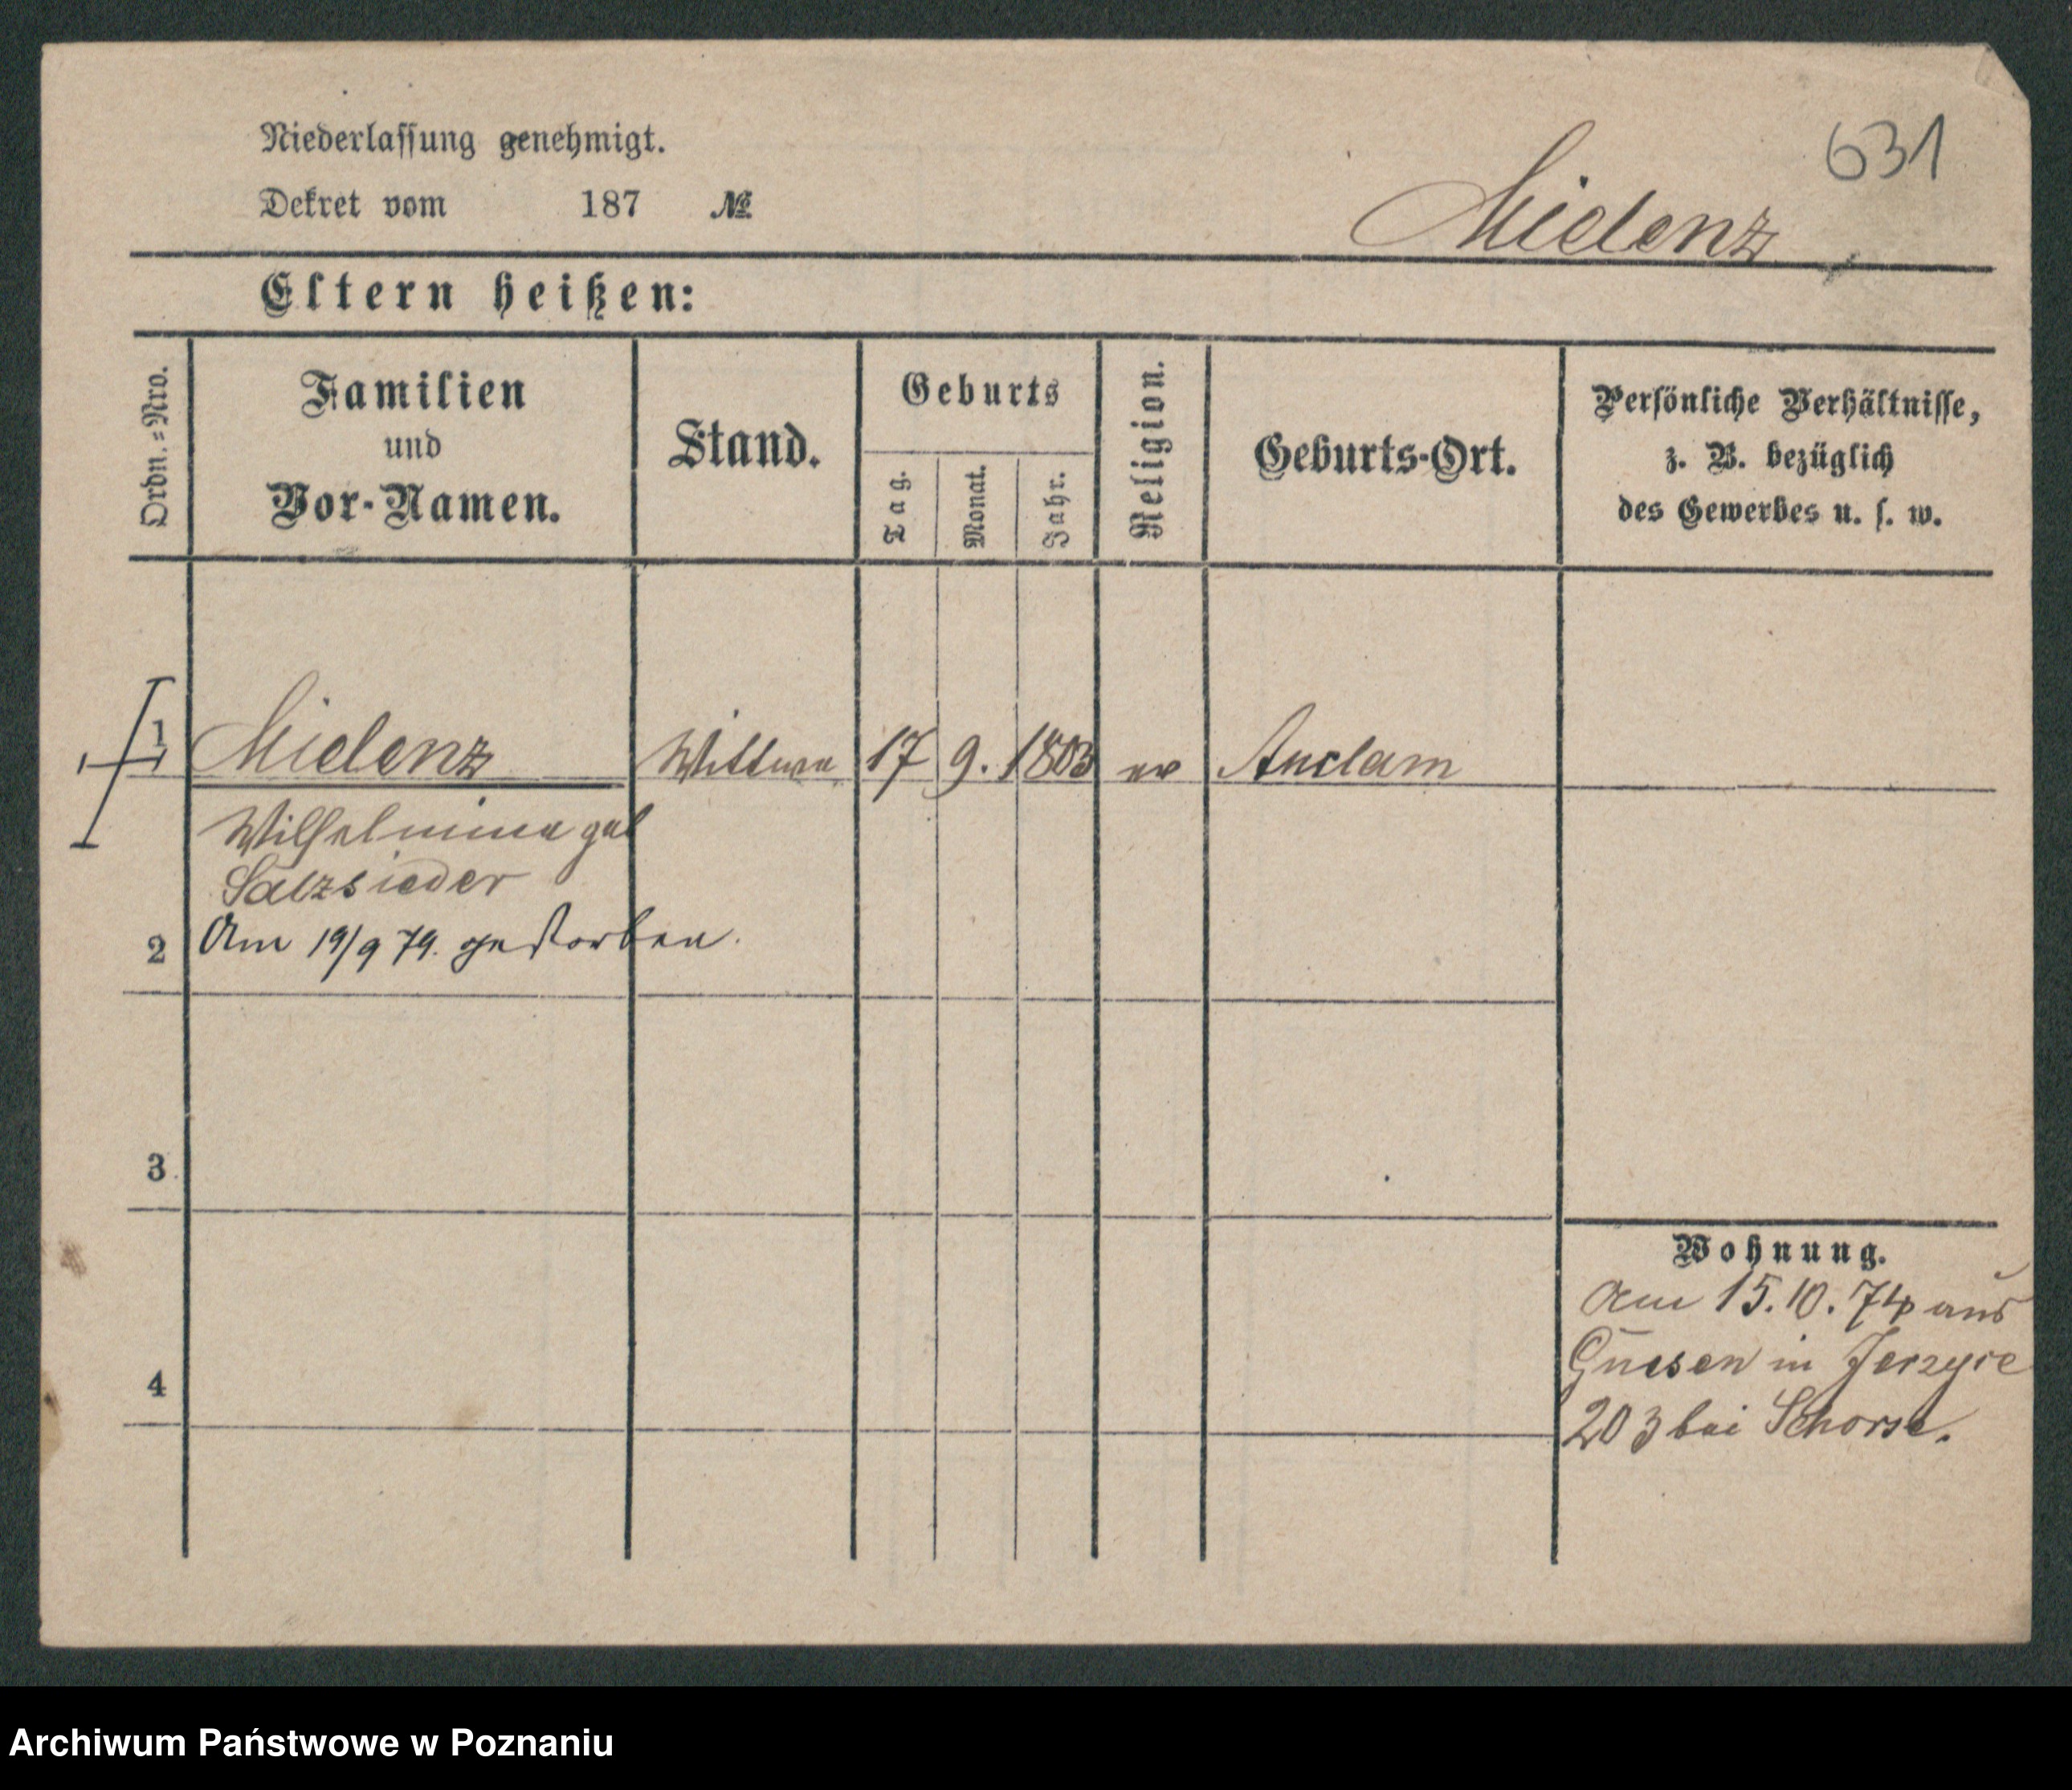 631
Niederlassung genehmigt.
Dekret vom 187 №
Mielenz
Eltern heißen:
Ordn.=Nro.
Familien
und
Vor-Namen.
Stand.
Geburts
Tag.
Monat.
Jahr.
Religion.
Geburts-Ort.
Persönliche Verhältnisse,
z. B. bezüglich
des Gewerbes u. s. w.
1 Mielenz Wittwe 17 9. 1803 ev Anclam
Wilhelmine geb
Salzsieder
2 Am 19/9 79. gestorben.
3
4
Wohnung.
Am 15.10.74 aus
Gnesen in Jerzyce
203 bei Schorse.
Archiwum Państwowe w Poznaniu